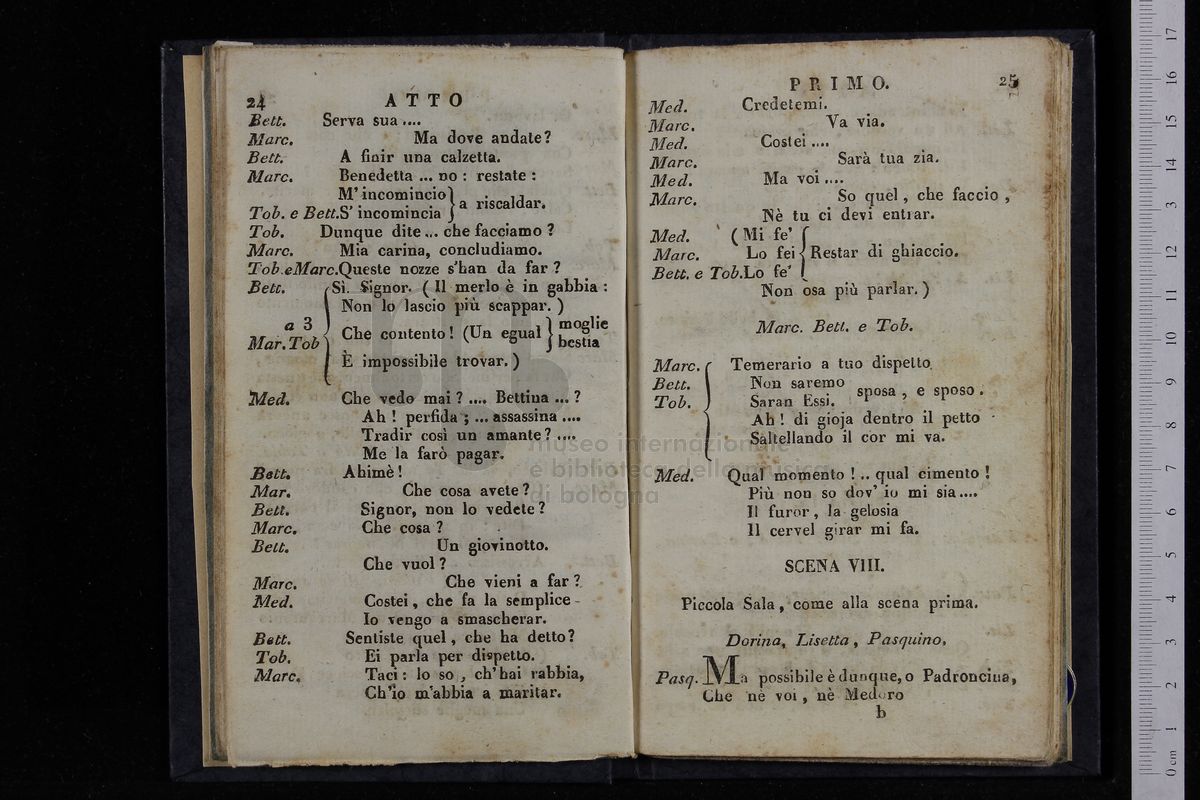 24 ATTO
Bett. Serva sua ....
Marc. Ma dove andate?
Bett. A finir una calzetta.
Marc. Benedetta ... no : restate :
M' incomincio
Tob. e Bett. S' incomincia } a riscaldar.
Tob. Dunque dite ... che facciamo ?
Marc. Mia carina, concludiamo.
Tob. e Marc. Queste nozze s'han da far ?
Bett. Sì. Signor. ( Il merlo è in gabbia :
Non lo lascio più scappar. )
a 3
Mar. Tob Che contento ! (Un egual } moglie
bestia
È impossibile trovar. )
Med. Che vedo mai ? .... Bettina ... ?
Ah ! perfida ; ... assassina ....
Tradir così un amante ? ....
Me la farò pagar.
Bett. Ahimè !
Mar. Che cosa avete ?
Bett. Signor, non lo vedete ?
Marc. Che cosa ?
Bett. Un giovinotto.
Che vuol ?
Marc. Che vieni a far ?
Med. Costei , che fa la semplice
Io vengo a smascherar.
Bett. Sentiste quel , che ha detto?
Tob. Ei parla per dispetto.
Marc. Taci : lo so , ch' hai rabbia,
Ch'io m'abbia a maritar.
PRIMO. 25
Med. Credetemi.
Marc. Va via.
Med. Costei ....
Marc. Sarà tua zia.
Med. Ma voi ....
Marc. So quel , che faccio ,
Nè tu ci devi entrar.
Med. ( Mi fe'
Marc. Lo fei { Restar di ghiaccio.
Bett. e Tob. Lo fe'
Non osa più parlar. )
Marc. Bett. e Tob.
Marc. Temerario a tuo dispetto
Bett. Non saremo
Tob. Saran Essi. sposa , e sposo .
Ah ! di gioja dentro il petto
Saltellando il cor mi va.
Med. Qual momento ! .. qual cimento !
Più non so dov' io mi sia ....
Il furor , la gelosia
Il cervel girar mi fa.
SCENA VIII.
Piccola Sala , come alla scena prima.
Dorina, Lisetta , Pasquino,
Pasq. Ma possibile è dunque, o Padroncina,
Che nè voi , nè Medoro
b
museo internazionale
e biblioteca della musica
di bologna
0 cm 1 2 3 4 5 6 7 8 9 10 11 12 13 14 15 16 17